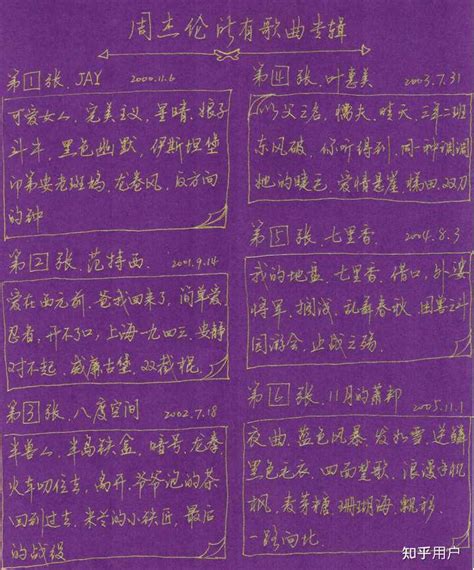 周杰伦所有歌曲专辑
第1张、JAY 2000.11.6
可爱女人，完美主义，星晴，娘子
斗牛，黑色幽默，伊斯坦堡
印第安老斑鸠，龙卷风，反方向
的钟
第2张、范特西 2001.9.14
爱在西元前，爸我回来了，简单爱
忍者，开不了口，上海一九四三，安静
对不起，威廉古堡，双截棍
第3张、八度空间 2002.7.18
半兽人，半岛铁盒，暗号，龙拳
火车叨位去，离开，爷爷泡的茶
回到过去，米兰的小铁匠，最后
的战役
第4张、叶惠美 2003.7.31
以父之名，懦夫，晴天，三年二班
东风破，你听得到，同一种调调
她的睫毛，爱情悬崖，梯田，双刀
第5张、七里香 2004.8.3
我的地盘，七里香，借口，外婆
将军，搁浅，乱舞春秋，困兽之斗
园游会，止战之殇
第6张、11月的萧邦 2005.11.1
夜曲，蓝色风暴，发如雪，逆鳞
黑色毛衣，四面楚歌，浪漫手机
枫，麦芽糖，珊瑚海，飘移
一路向北
知乎用户